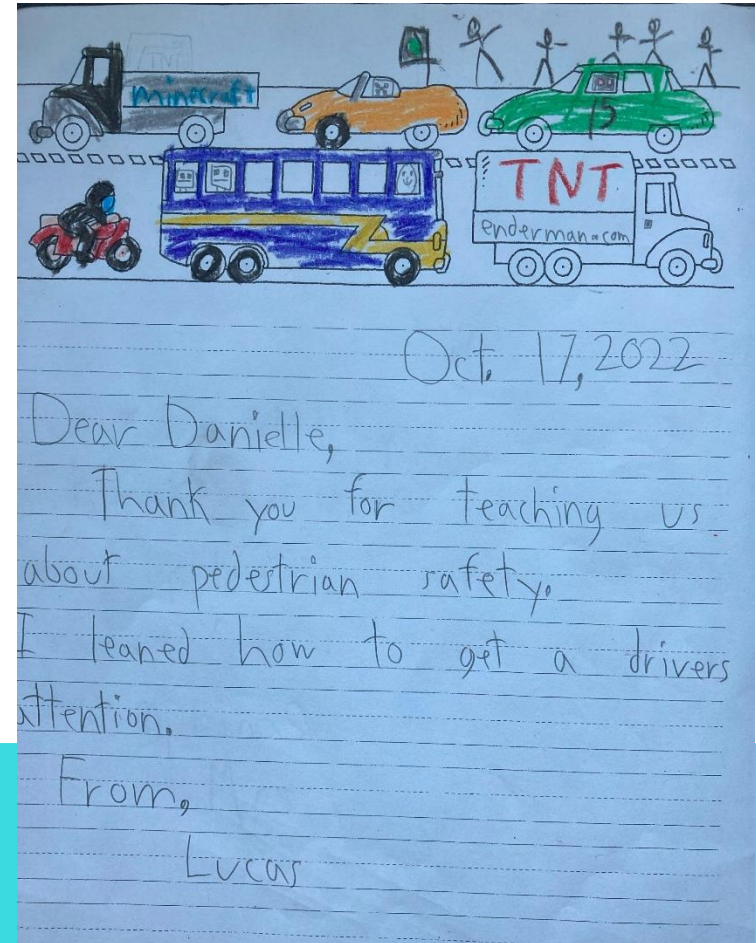 minecraft
15
TNT
enderman.com
Oct. 17, 2022
Dear Danielle,
Thank you for teaching us
about pedestrian safety.
I leaned how to get a drivers
attention.
From,
Lucas